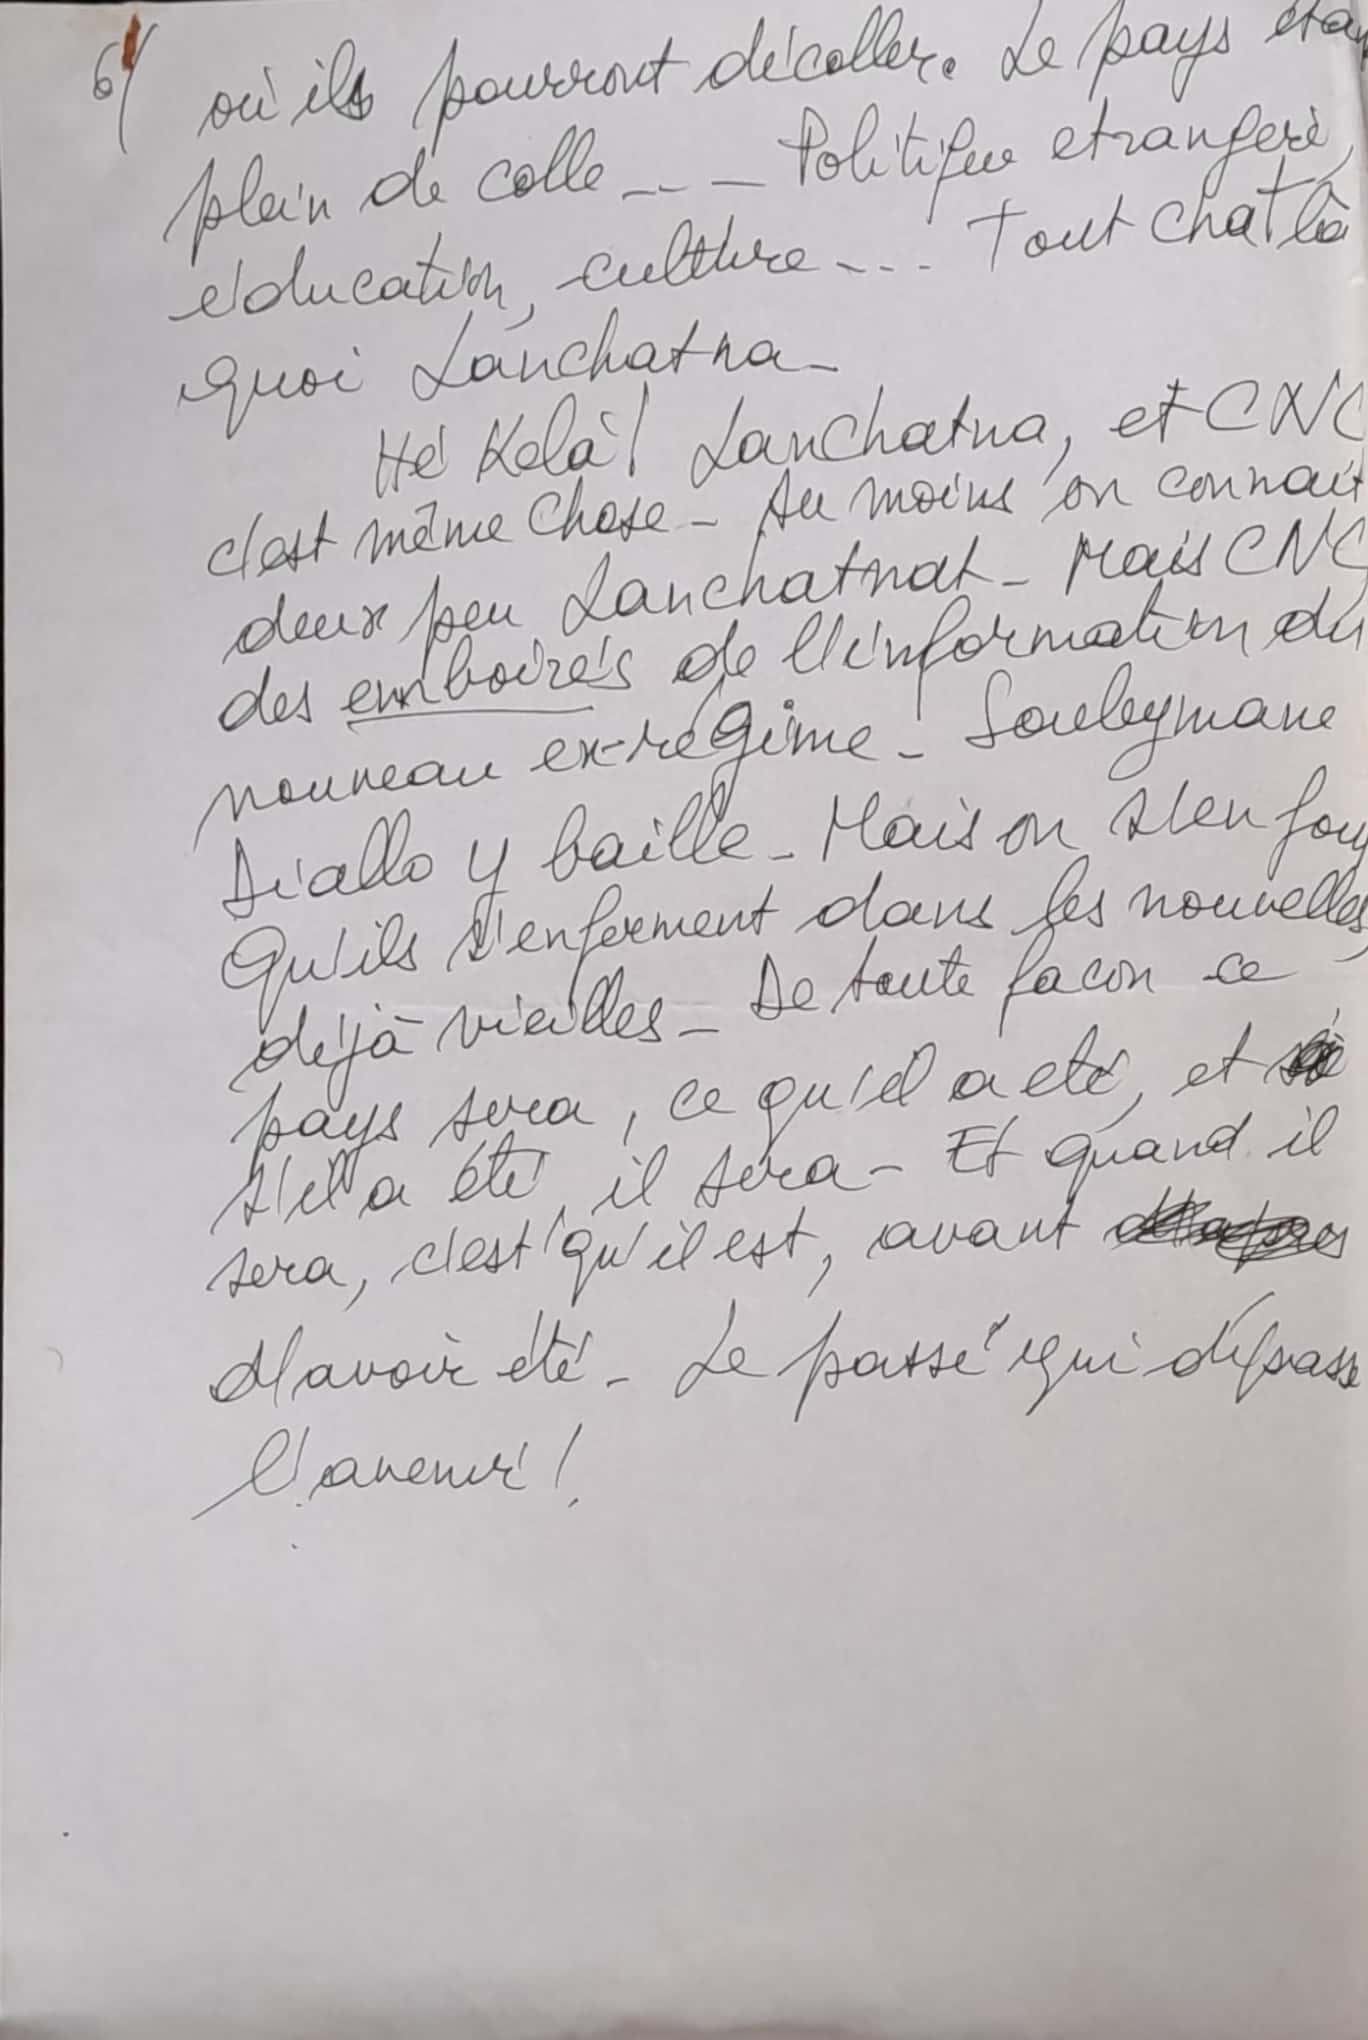 6/ où ils pourront décoller. Le pays étan
plein de colle --- Politique etrangerè,
éducation, culture --- Tout chat là
quoi Lanchatna -
Hé Kela! Lanchatna, et CNC
c'est même chose - Au moins on connait
deux peu Lanchatnat - Mais CNC
des emboirés de l'information du
nouveau ex-régime - Souleymane
Diallo y baille - Mais on s'en fou
Qu'ils s'enferment dans les nouvelles,
déjà vieilles - De toute facon ce
pays sera, ce qu'il a eté, et
s'il a été, il sera - Et quand il
sera, c'est qu'il est, avant
d'avoir été - Le passé qui dépasse
l'avenir!